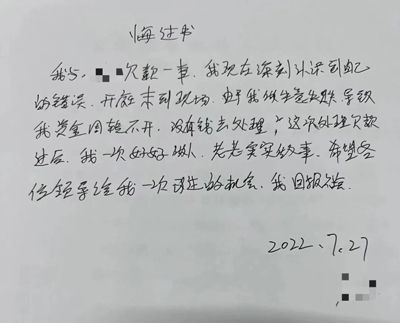 悔过书
我与 欠款一事，我现在深刻认识到自己
的错误，开庭未到现场，由于我做生意失败导致
我资金周转不开，没有钱去处理，这次处理欠款
过后，我一次好好做人，老老实实做事，希望各
位领导给我一次改过的机会，我回报社会。
2022.7.27